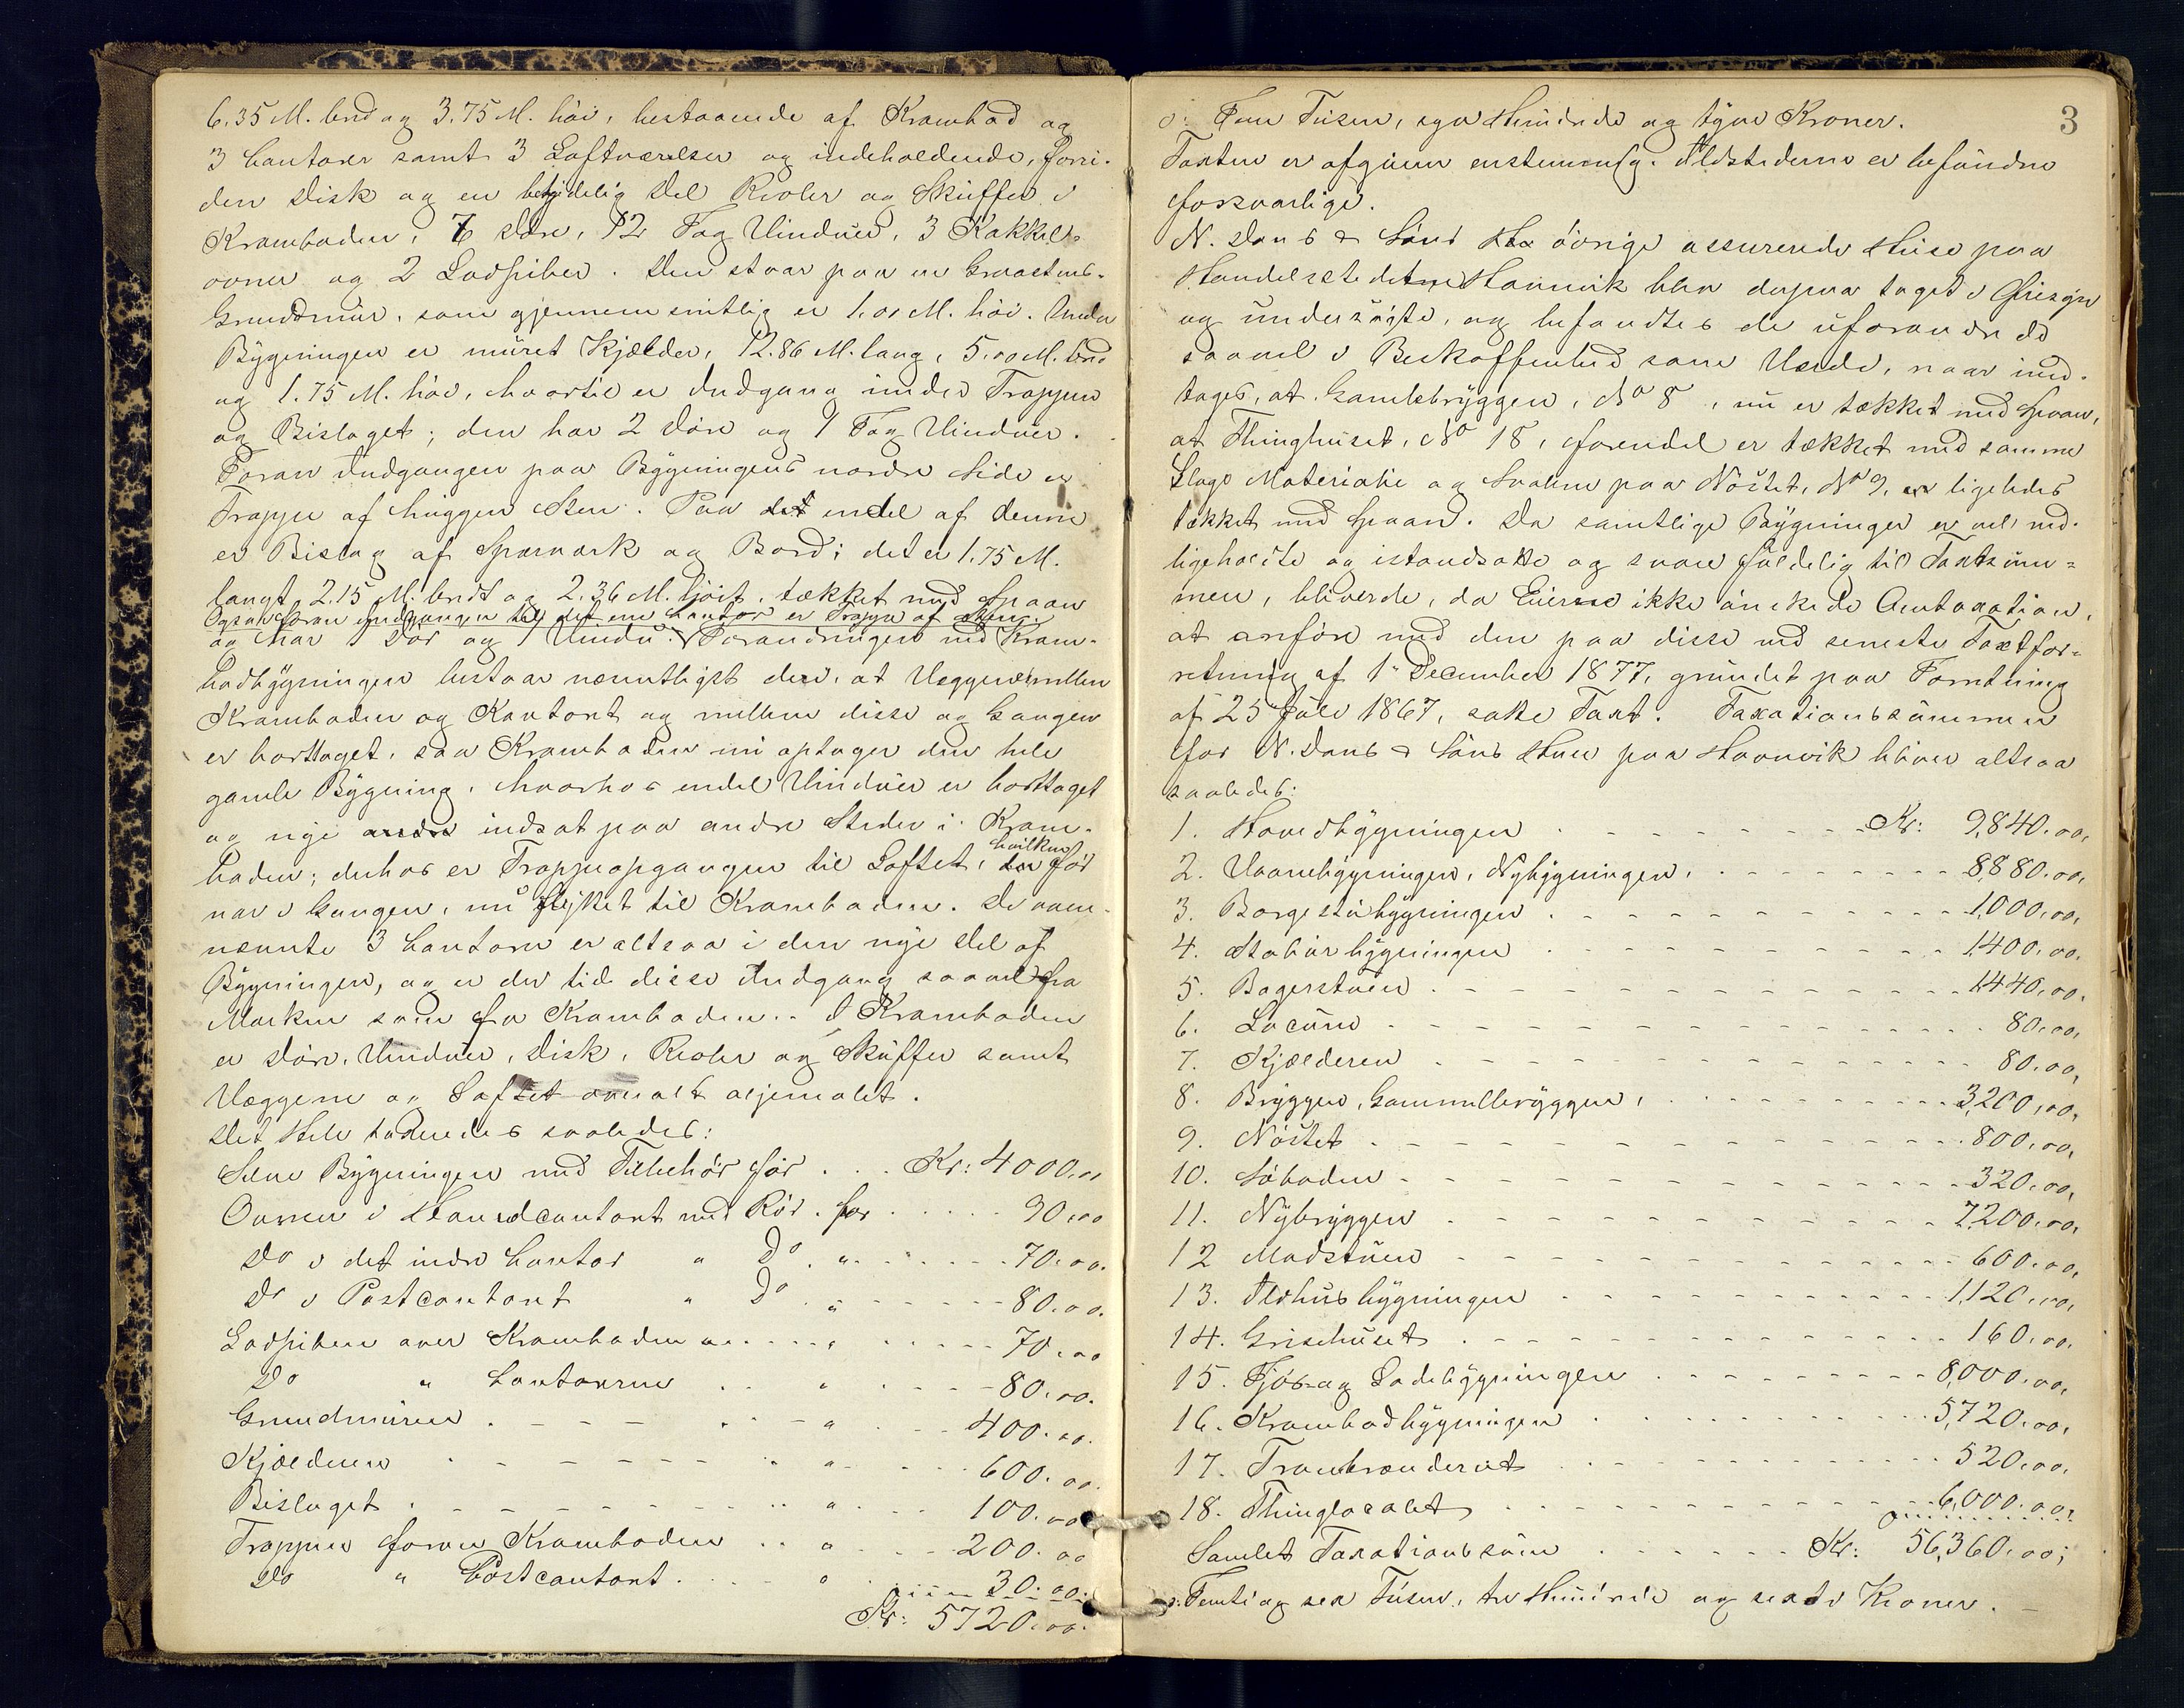 6.35 M. bred og 3.75 M. höi, bestaaende af Krambod og
3 Contorer samt 3 Loftværelser og indeholdende, foru-
den Disk og en betydelig Del Reoler og Skuffer i
Kramboden, 7 Døre, 12 Fag Vinduer, 3 Kakkel-
ovner og 2 Ladpiber. Den staar paa en Graastens-
Grundmur, som gjennemsnitlig er 1.00 M. höi. Under
Bygningen er muret Kjælder, 12.86 M. lang, 5.00 M. bred
og 1.75 M. höi, hvortil er Indgang under Trappen
og Bislaget; den har 2 Døre og 1 Fag Vinduer.
Foran Indgangen paa Bygningens nordre Side er
Trappe af huggen Sten. Paa det endel af denne
er Bislag af Spærværk og Bord; det er 1.75 M.
langt, 2.15 M. bredt og 2.36 M. höit, tækket med Spaan
Ogsaa foran Indgangen til det ene Contor er Trappe af Sten.
og har 1 Dör og 1 Vindu. Forandringen ved Kram-
bodbygningen bestaar væsentligst deri, at Væggene mellem
Kramboden og Kontoret og mellem disse og Gangen
er borttaget, saa Kramboden nu optager den hele
gamle Bygning, hvorhos endel Vinduer er borttaget
og nye andre indsat paa andre Steder i Kram-
boden; derhos er Trappeopgangen til Loftet, hvilken för
var i Gangen, nu flyttet til Kramboden. De oven-
nævnte 3 Contorer er altsaa i den nye Del af
Bygningen, og er der til disse Indgang saavel fra
Marken som fra Kramboden. I Kramboden
er Döre, Vinduer, Disk, Reoler og Skuffer samt
Væggene og Loftet overalt oljemalet.
Det Hele taxeredes saaledes:
Selve Bygningen med Tilbehör för . . . Kr: 4000.00
Ovnen i Hovedcontoret med Rör . for . . . . . 90.00
Do i det indre Contor " Do . " . . . . . 70.00.
Do i Postcontoret " Do . " - - - - - 80.00.
Ladpiben over Kramboden . . . . . " . . . - - - 70.00
Do " Contorerne . . " . - - - 80.00.
Grundmuren . - - - . . - " . . - - 400.00.
Kjælderen . - - - - - . . " - . . - - 600.00.
Bislaget . - - - - - - - . . " - . . - 100.00
Trappen foran Kramboden . . " . . - - 200.00
Do " Postcontoret . . . - " . . . . 30.00.
Kr: 5720.00.
3
o: Fem Tusen, syv Hundrede og tyve Kroner.
Taxten er afgiven enstemmig. Ildstederne er befundne
forsvarlige.
N. Dons & Söns övrige assurerede Huse paa
Handelsstedet Havnvik blev derpaa taget i Öiesyn
og undersögte, og befandtes de uforandrede
saavel i Beskaffenhed som Værdi, naar und-
tages, at Gamlebryggen, No 8, nu er tækket med Spaan,
at Thinghuset, No 18, forendel er tækket med samme
Slags Materiale og Svalen paa Nöstet, No 9, er ligeledes
tækket med Spaan. Da samtlige Bygninger er vel ved-
ligeholdte og istandsatte og svare fuldelig til Taxtsum-
men, bliver de, da Eierne ikke önskede Omtaxation,
at anföre med den paa disse ved seneste Taxtfor-
retning af 1ste December 1877, grundet paa Forretning
af 25 Juli 1867, satte Taxt. Taxationssummen
for N. Dons & Söns Huse paa Havnvik bliver altsaa
saaledes:
1. Hovedbygningen . - - - - - - - Kr: 9,840.00,
2. Vaanebygningen, Nybygningen, . - - - - - - - 8,880.00,
3. Borgestubygningen . - - - - - - - - - - 1,000.00,
4. Stabursbygningen . - - - - - - - - - - 1,400.00.
5. Bagerstuen . - - - - - - - - - - - - 1,440.00.
6. Locum . - - - - - - - - - - - - - - 80.00,
7. Kjælderen . - - - - - - - - - - - - - 80.00,
8. Bryggen, Gammelbryggen, . . - - - - - - - 3,200.00,
9. Nöstet . - - - - - - - - - - - - - - 800.00,
10. Söboden - - - - - - - - - - - - - - 320.00,
11. Nybryggen . - - - - - - - - - - - - 7,200.00,
12 Madstuen - - - - - - - - - - - - - - 600.00,
13. Ildhusbygningen . - - - - - - - - - - 1,120.00,
14. Grisehuset . - - - - - - - - - - - - 160.00.
15. Fjös- og Ladebygningen . - - - - - - - - 8,000.00,
16. Krambodbygningen . . . . . . . . . . 5,720.00,
17. Tranbrænderiet . - - . . . . . . . . . 520.00.
18. Thinglocalet . - - - - - - - - - - - 6,000.00.
Samlet Taxationssum . - - - - - Kr: 56,360.00;
o: Femti og sex Tusen, tre Hundrede og sexti Kroner. —